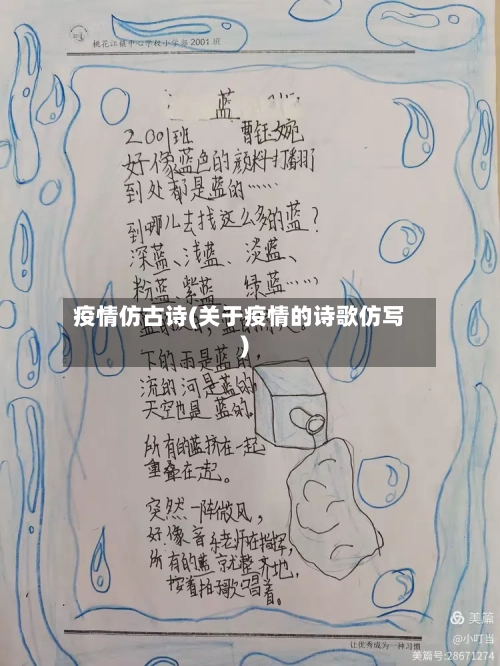 桃花江镇中心学校小学部2001班
蓝
2001班 曹钰婉
好像蓝色的颜料打翻了
到处都是蓝的……
到哪儿去找这么多的蓝？
深蓝、浅蓝、淡蓝、
粉蓝、紫蓝、绿蓝……
疫情仿古诗(关于疫情的诗歌仿写
)
下的雨是蓝的，
流的河是蓝的，
天空也是蓝的。
所有的蓝挤在一起
重叠在一起。
突然一阵微风，
好像音乐老师在指挥，
所有的蓝就整齐地，
按着拍子歌唱着。
让优秀成为一种习惯
美篇
@小叮当
美篇号:28671274